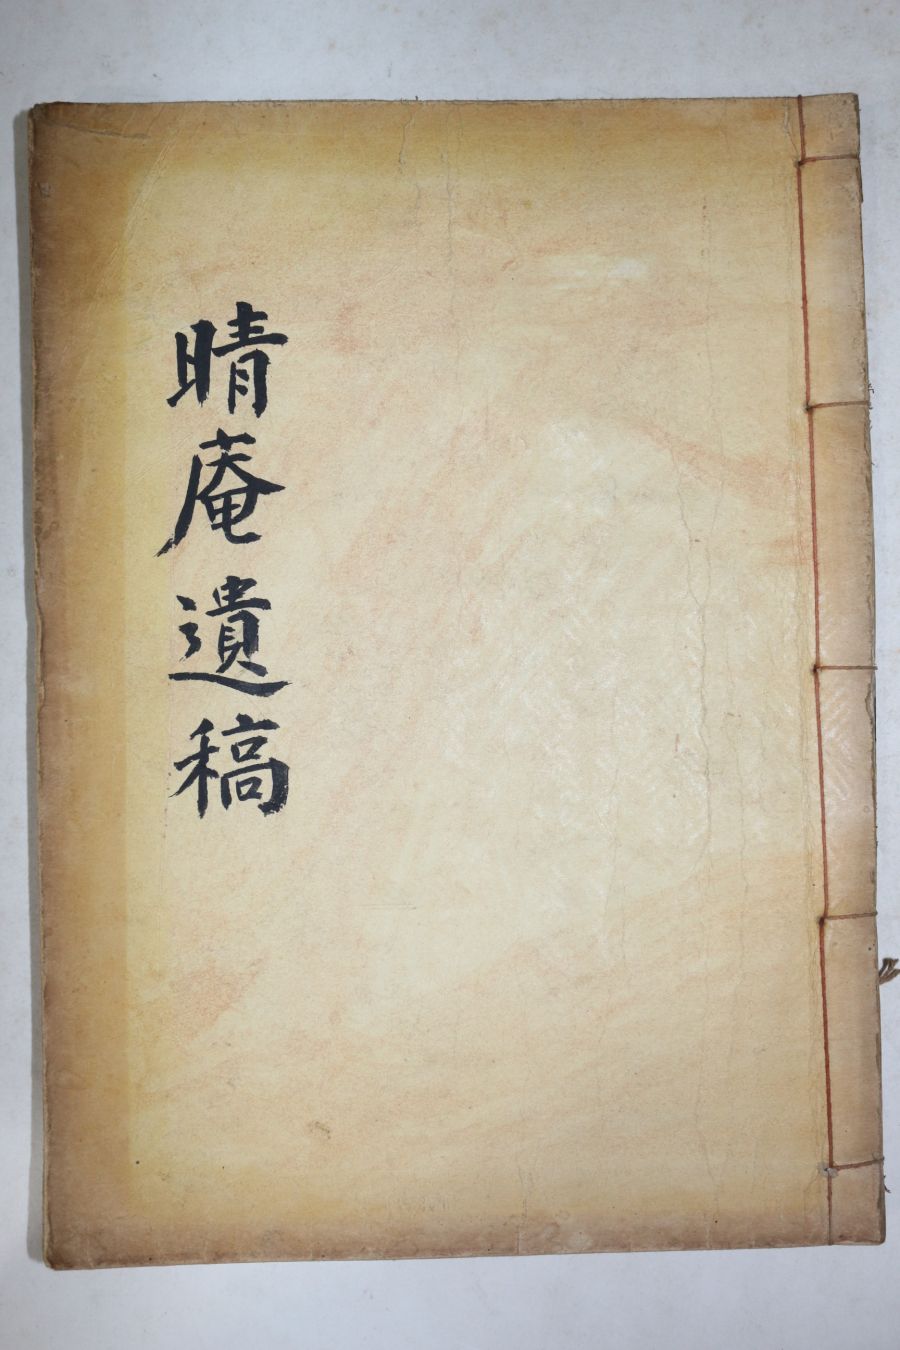 晴庵遺稿